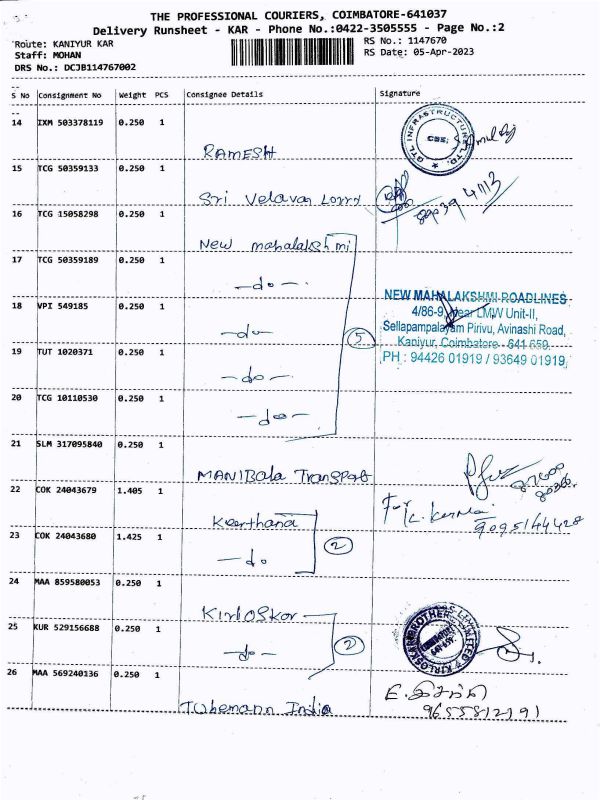 THE PROFESSIONAL COURIERS, COIMBATORE-641037
Delivery Runsheet - KAR - Phone No.:0422-3505555 - Page No.:2
Route: KANIYUR KAR
RS No.: 1147670
Staff: MOHAN
RS Date: 05-Apr-2023
DRS No.: DCJB114767002
S No Consignment No Weight PCS Consignee Details Signature
14 IXM 503378119 0.250 1
RAMESH
GTL INFRASTRUCTURE LTD.
15 TCG 50359133 0.250 1
Sri Velavan Lorry
16 TCG 15058298 0.250 1
New mahalakshmi
17 TCG 50359189 0.250 1
-do-
18 VPI 549185 0.250 1
-do-
19 TUT 1020371 0.250 1
-do-
20 TCG 10110530 0.250 1
-do-
5
NEW MAHALAKSHMI ROADLINES
4/86-9, Near LMW Unit-II,
Sellapampalayam Pirivu, Avinashi Road,
Kaniyur, Coimbatore - 641 659.
PH : 94426 01919 / 93649 01919
21 SLM 317095840 0.250 1
MANIBala Transport
22 COK 24043679 1.405 1
Keerthana
For
9095144428
23 COK 24043680 1.425 1
-do
2
24 MAA 859580053 0.250 1
Kirloskor
25 KUR 529156688 0.250 1
-do-
2
KIRLOSKAR BROTHERS LIMITED
26 MAA 569240136 0.250 1
Tubemann India
9655812191